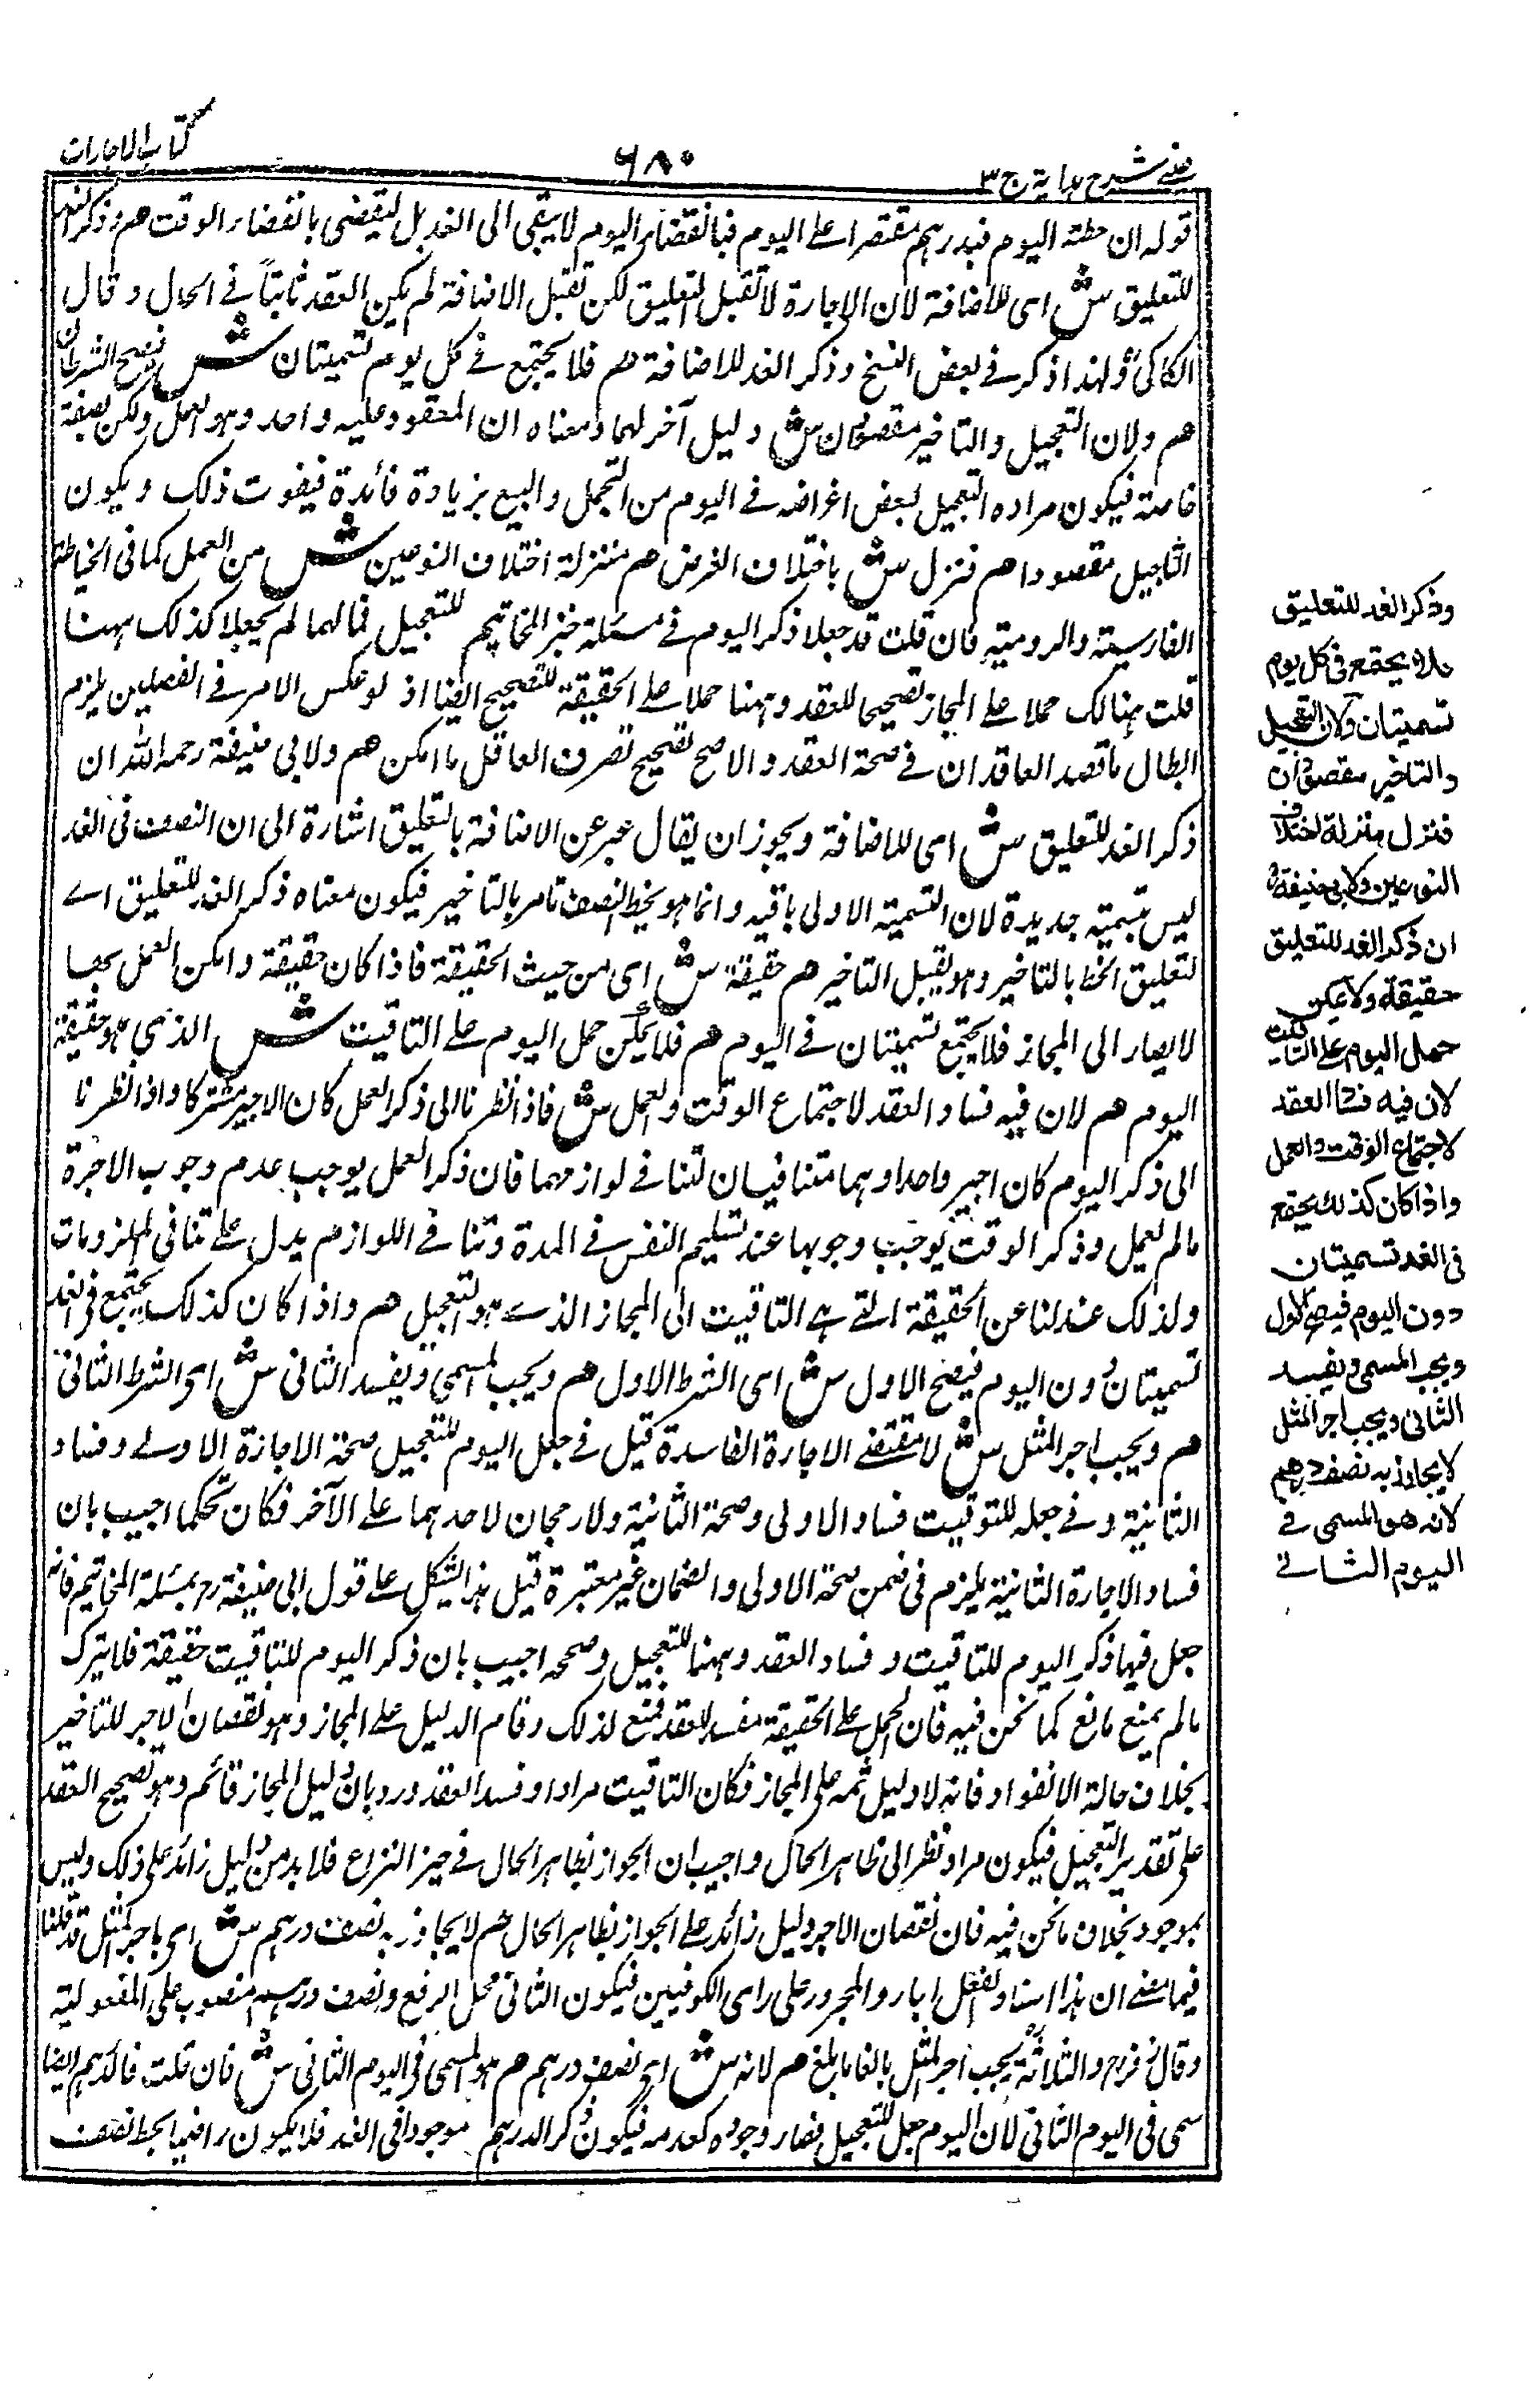 كتاب الاجارات
٦٨٠
عينى شرح هداية ج ٣
قوله ان خطته اليوم فبدرهم مقتصرا على اليوم فبانقضاء اليوم لا يبقى الى الغد بل ينقضى بانقضاء الوقت هم وذكر الغد
للتعليق ش اى للاضافة لان الاجارة لا تقبل التعليق لكن تقبل الاضافة لم يكن العقد ثابتاً فى الحال وقال
الكاكى ولهذا ذكر فى بعض النسخ وذكر الغد للاضافة هم فلا يجتمع فى كل يوم تسميتان ش فيصح الشرطان
هم ولان التعجيل والتاخير مقصودان ش دليل آخر لهما ومعناه ان المعقود عليه واحد وهو العمل ولكن بصفة
خاصة فيكون مراده التعجيل لبعض اغراضه فى اليوم من التجمل والبيع بزيادة فائدة فيفوت ذلك ويكون
التاجيل مقصودا هم فنزل ش باختلاف الغرض هم منزلة اختلاف النوعين ش من العمل كما فى الخياطة
الفارسية والرومية فان قلت قد جعلا ذكر اليوم فى مسئلة خبز المخاتيم للتعجيل فما لهما لم يجعلا كذلك ههنا
قلت هنالك حملا على المجاز تصحيحا للعقد وههنا حملا على الحقيقة للتصحيح ايضا اذ لو عكس الامر فى الفصلين يلزم
ابطال ما قصد العاقدان فى صحة العقد والاصح تصحيح تصرف العاقل ما امكن هم ولابى حنيفة رحمه الله ان
ذكر الغد للتعليق ش اى للاضافة ويجوز ان يقال عبر عن الاضافة بالتعليق اشارة الى ان النصف فى الغد
ليس بتسمية جديدة لان التسمية الاولى باقية وانما هو بحط النصف تامر بالتاخير فيكون معناه ذكر الغد للتعليق اى
لتعليق الحط بالتاخير وهو يقبل التاخير هم حقيقة ش اى من حيث الحقيقة فاذا كان حقيقة وامكن العمل بها
لا يصار الى المجاز فلا يجتمع تسميتان فى اليوم هم فلا يمكن حمل اليوم على التاقيت ش الذى هو حقيقة
اليوم هم لان فيه فساد العقد لاجتماع الوقت والعمل ش فاذا نظرنا الى ذكر العمل كان الاجير مشتركا واذا نظرنا
الى ذكر اليوم كان اجير واحدا وهما متنافيان لتنافى لوازمهما فان ذكر العمل يوجب عدم وجوب الاجرة
مالم يعمل وذكر الوقت يوجب وجوبها عند تسليم النفس فى المدة وتنافى اللوازم يدل على تنافى الملزومات
ولذلك عدلنا عن الحقيقة التى هى التاقيت الى المجاز الذى هو التعجيل هم واذا كان كذلك يجتمع فى الغد
تسميتان دون اليوم فيصح الاول ش اى الشرط الاول هم ويجب المسمى ويفسد الثانى ش اى الشرط الثانى
هم ويجب اجر المثل ش لا مقتضى الاجارة الفاسدة قيل فى جعل اليوم للتعجيل صحة الاجازة الاولى وفساد
الثانية وفى جعله للتوقيت فساد الاولى وصحة الثانية ولا رجحان لاحدهما على الآخر فكان تحكما اجيب بان
فساد الاجارة الثانية يلزم فى ضمن صحة الاولى والضمان غير معتبرة قيل هذا اشكل على قول ابى حنيفة رح بمسئلة المخاتيم فانه
جعل فيها ذكر اليوم للتاقيت وفساد العقد وههنا للتعجيل وصححه اجيب بان ذكر اليوم للتاقيت حقيقة فلا يترك
مالم يمنع مانع كما نحن فيه فان الحمل على الحقيقة مفسد للعقد فمنع لذلك وقام الدليل على المجاز وهو نقصان الاجر للتاخير
بخلاف حالة الانفراد فانه لا دليل ثمه على المجاز فكان التاقيت مرادا وفسد العقد ورد بان دليل المجاز قائم وهو تصحيح العقد
على تقدير التعجيل فيكون مراد نظرا الى ظاهر الحال واجيب ان الجواز بظاهر الحال فى حيز النزاع فلا بد من دليل زائد على ذلك وليس
بموجود بخلاف ما نحن فيه فان نقصان الاجر دليل زائد على الجواز بظاهر الحال هم لا يجاوز به نصف درهم ش اى باجر المثل قد قلنا
فيما مضى ان هذا اسناد الفعل الى الجار والمجرور على راى الكوفيين فيكون الثانى محل الرفع ونصف درهم منصوب على المفعولية
وقال زفر رح والثلاثة يجب اجر المثل بالغا ما بلغ هم لانه ش اى نصف درهم هم هو المسمى فى اليوم الثانى ش فان قلت فالدرهم ايضا
سمى فى اليوم الثانى لان اليوم جعل للتعجيل فصار وجوده كعدمه فيكون ذكر الدرهم موجودا فى الغد فلا يكون راضيا بحط نصف
وذكر الغد للتعليق
فلا يجتمع فى كل يوم
تسميتان ولان التعجيل
والتاخير مقصودان
فنزل منزلة اختلاف
النوعين ولابى حنيفة رح
ان ذكر الغد للتعليق
حقيقة ولا يمكن
حمل اليوم على التاقيت
لان فيه فساد العقد
لاجتماع الوقت والعمل
واذا كان كذلك يجتمع
فى الغد تسميتان
دون اليوم فيصح الاول
ويجب المسمى ويفسد
الثانى ويجب اجر المثل
لا يجاوز به نصف درهم
لانه هو المسمى فى
اليوم الثانى